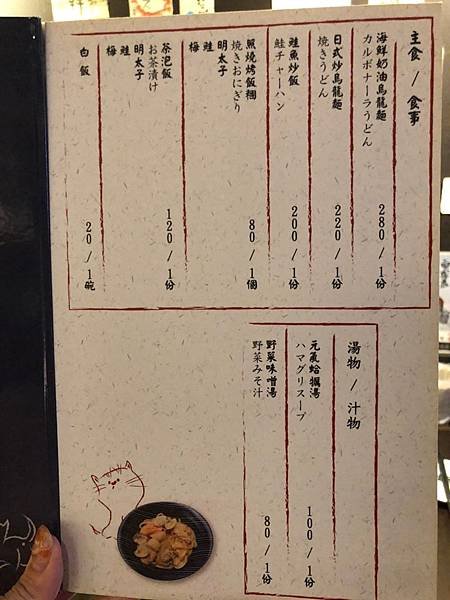 主食／食事
海鮮奶油烏龍麵
カルボナーラうどん
280／1份
日式炒烏龍麵
焼きうどん
220／1份
鮭魚炒飯
鮭チャーハン
200／1份
照燒烤飯糰
焼きおにぎり
明太子
鮭
梅
80／1個
茶泡飯
お茶漬け
明太子
鮭
梅
120／1份
白飯
20／1碗
湯物／汁物
元氣蛤蠣湯
ハマグリスープ
100／1份
野菜味噌湯
野菜みそ汁
80／1份